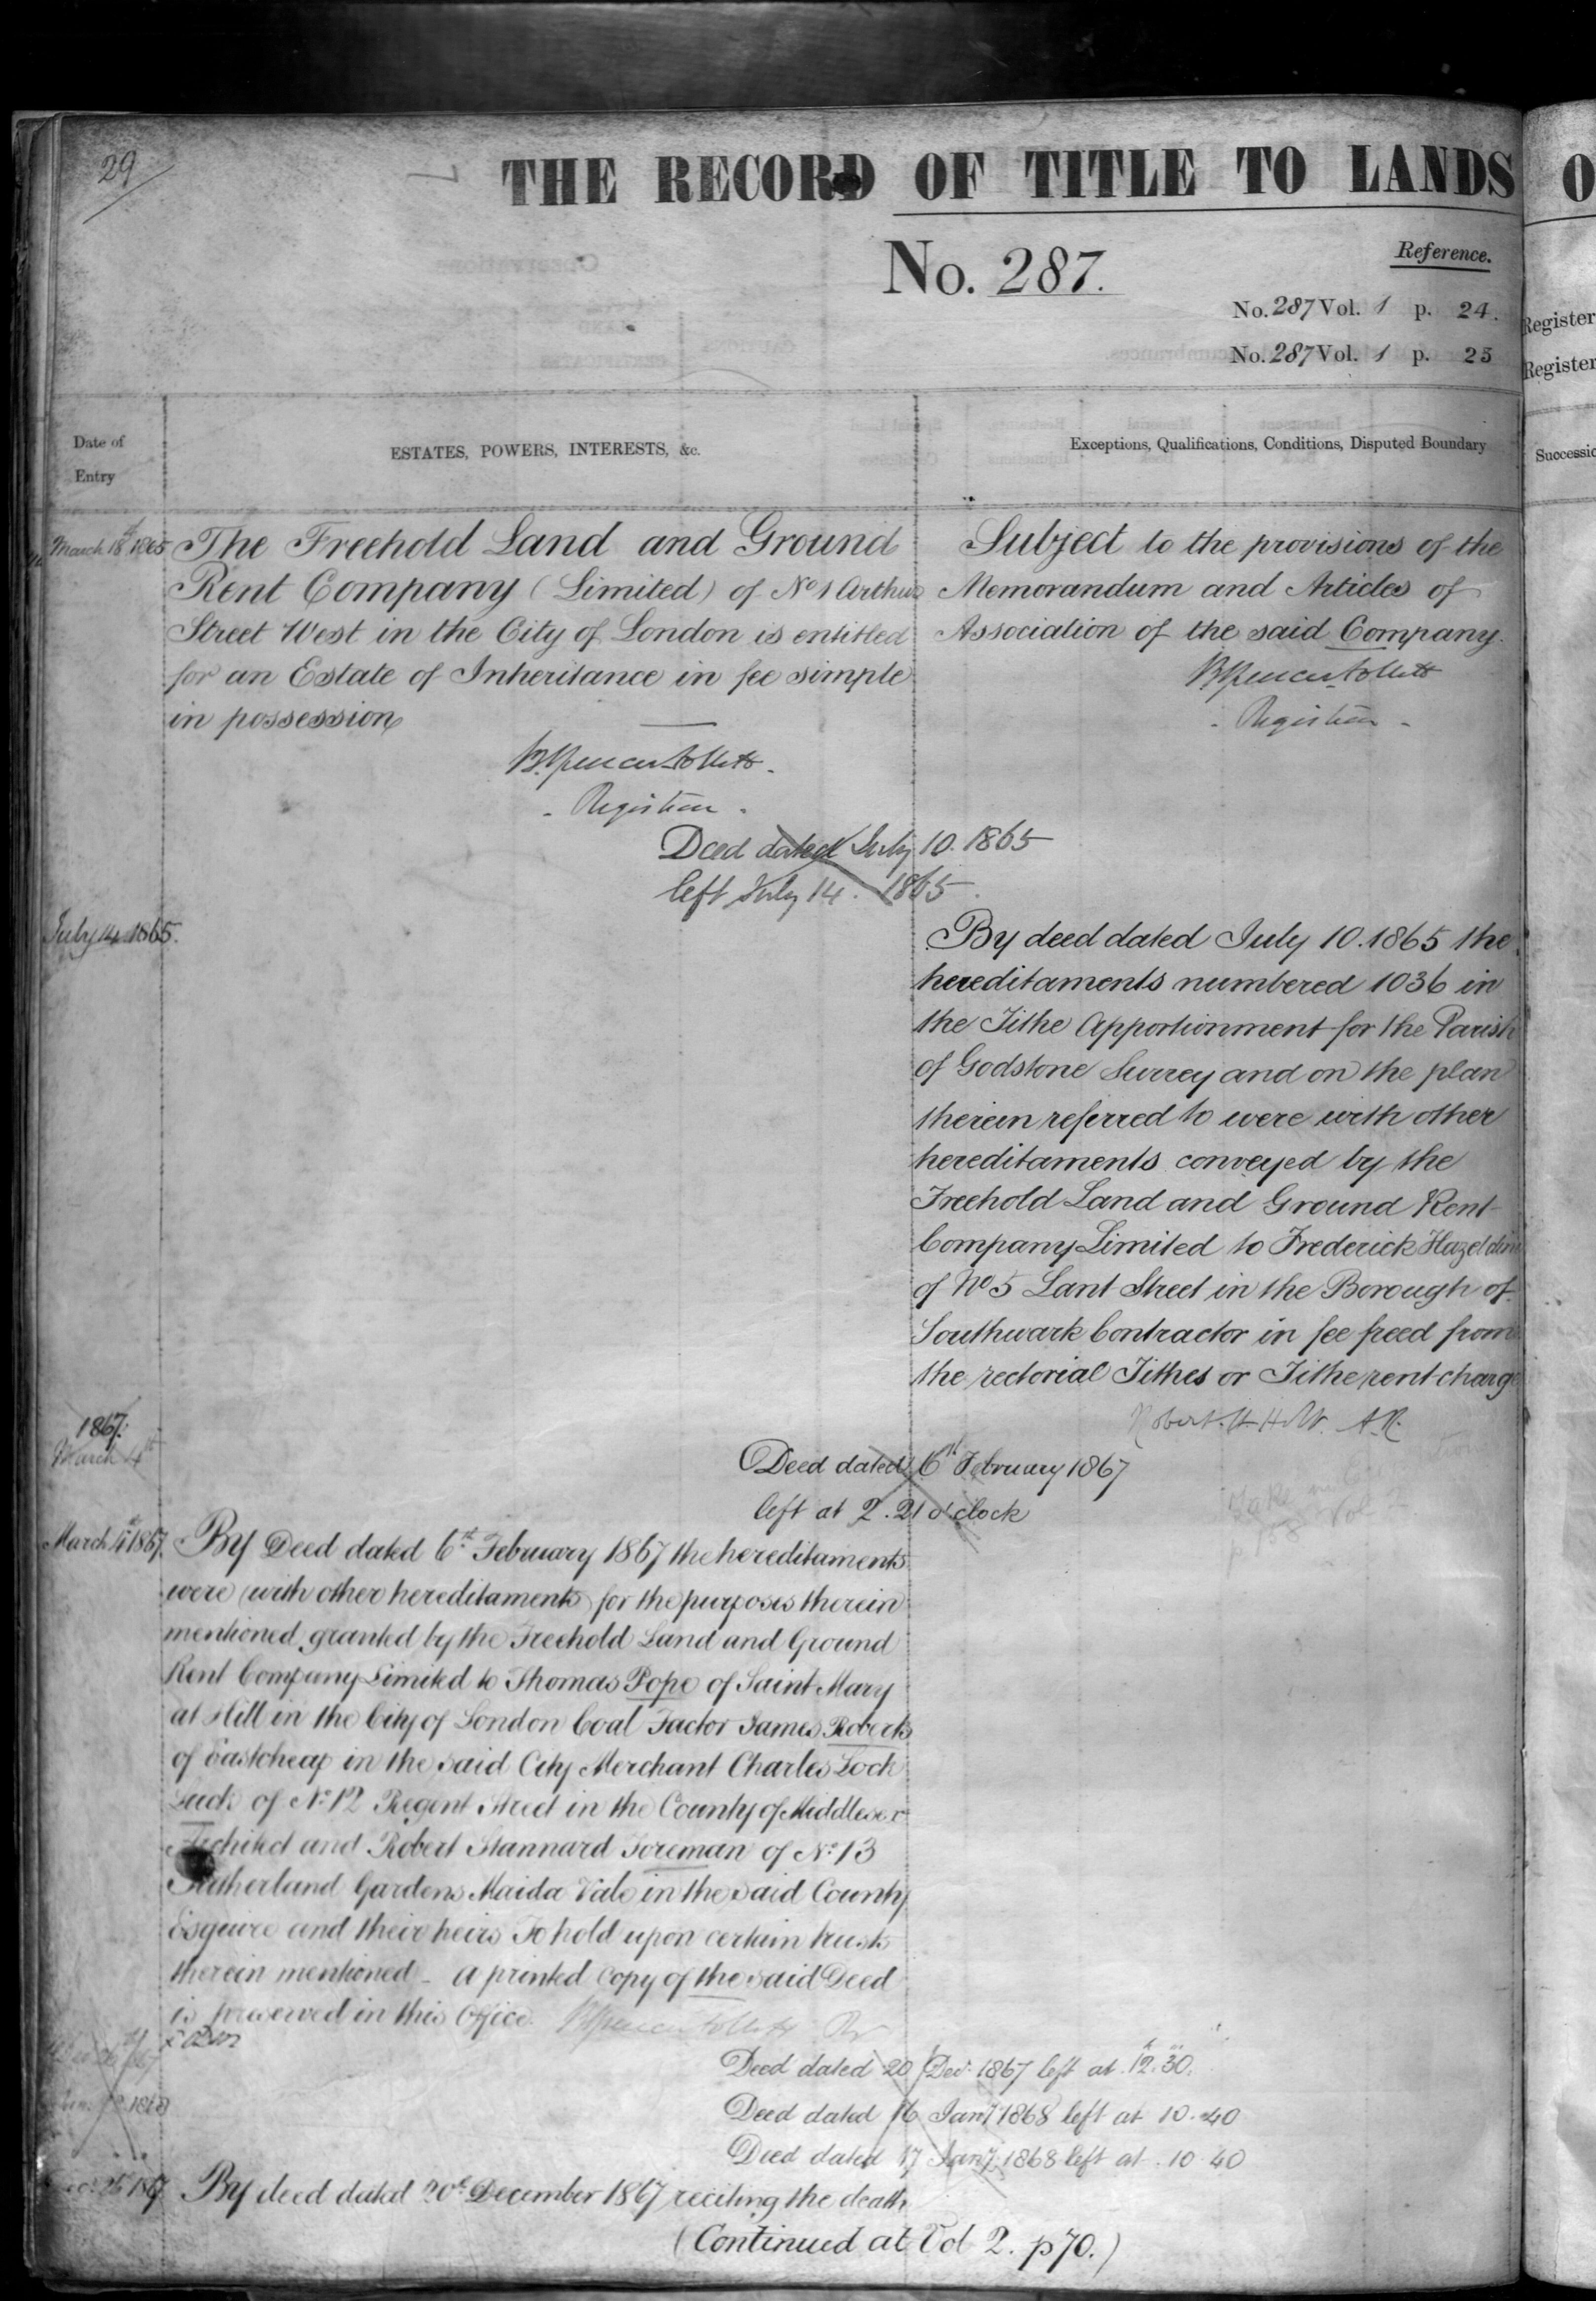 29
THE RECORD OF TITLE TO LANDS
No. 287.
Reference.
No. 287 Vol. 1 p. 24.
No. 287 Vol. 1 p. 25
Date of
Entry
ESTATES, POWERS, INTERESTS, &c.
Exceptions, Qualifications, Conditions, Disputed Boundary
March 18th 1865
The Freehold Land and Ground
Rent Company (Limited) of No 1 Arthur
Street West in the City of London is entitled
for an Estate of Inheritance in fee simple
in possession
B Spencer Follett
Registrar
Subject to the provisions of the
Memorandum and Articles of
Association of the said Company.
B Spencer Follett
Registrar
Deed dated July 10. 1865
left July 14. 1865
July 14 1865.
By deed dated July 10. 1865 the
hereditaments numbered 1036 in
the Tithe Apportionment for the Parish
of Godstone Surrey and on the plan
therein referred to were with other
hereditaments conveyed by the
Freehold Land and Ground Rent
Company Limited to Frederick Hazeldine
of No 5 Lant Street in the Borough of
Southwark Contractor in fee freed from
the rectorial Tithes or Tithe rent-charge
Robert. H. Holt. A.R.
1867.
March 4th
Deed dated 6th February 1867
left at 2. 21 o'clock
March 4th 1867.
By Deed dated 6th February 1867 the hereditaments
were (with other hereditaments) for the purposes therein
mentioned granted by the Freehold Land and Ground
Rent Company Limited to Thomas Pope of Saint Mary
at Hill in the City of London Coal Factor James Roberts
of Eastcheap in the said City Merchant Charles Lock
Luck of No 12 Regent Street in the County of Middlesex
Architect and Robert Stannard Foreman of No 13
Sutherland Gardens Maida Vale in the said County
Esquire and their heirs To hold upon certain trusts
therein mentioned - A printed copy of the said Deed
is preserved in this Office. B Spencer Follett Rr
Deed dated 20 Decr 1867 left at 12.30.
Deed dated 16 Jany 1868 left at 10.40
Deed dated 17 Jany 1868 left at 10.40
Decr 26th 1867
By deed dated 20th December 1867 reciting the death
(Continued at Vol 2. p 70.)
O
Register
Register
Successio